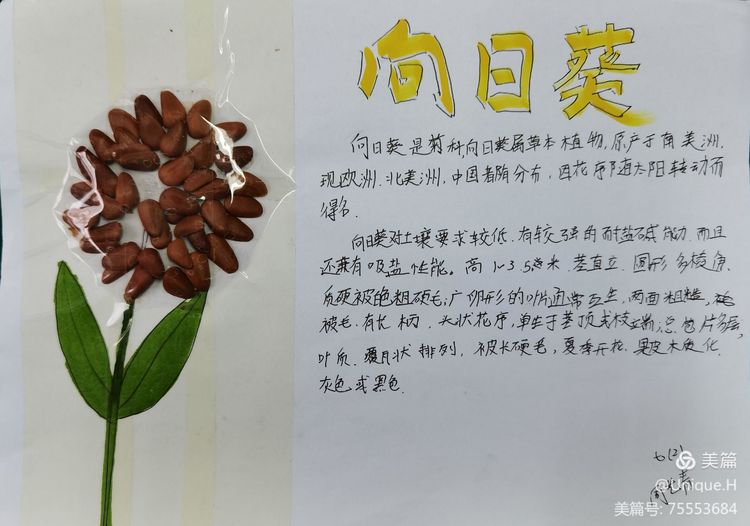 向日葵
向日葵是菊科向日葵属草本植物,原产于南美洲.
现欧洲.北美洲.中国都有分布,因花序随太阳转动而
得名.
向日葵对土壤要求较低.有较强的耐盐碱能力.而且
还兼有吸盐性能。高1-3.5米.茎直立.圆形多棱角.
质硬被白色粗硬毛;广卵形的叶片通常互生,两面粗糙,
被毛.有长柄.头状花序,单生于茎顶或枝端;总苞片多层,
叶质.覆瓦状排列.被长硬毛,夏季开花.果皮木质化.
灰色或黑色.
6(2)
美篇
@Unique.H
美篇号: 75553684